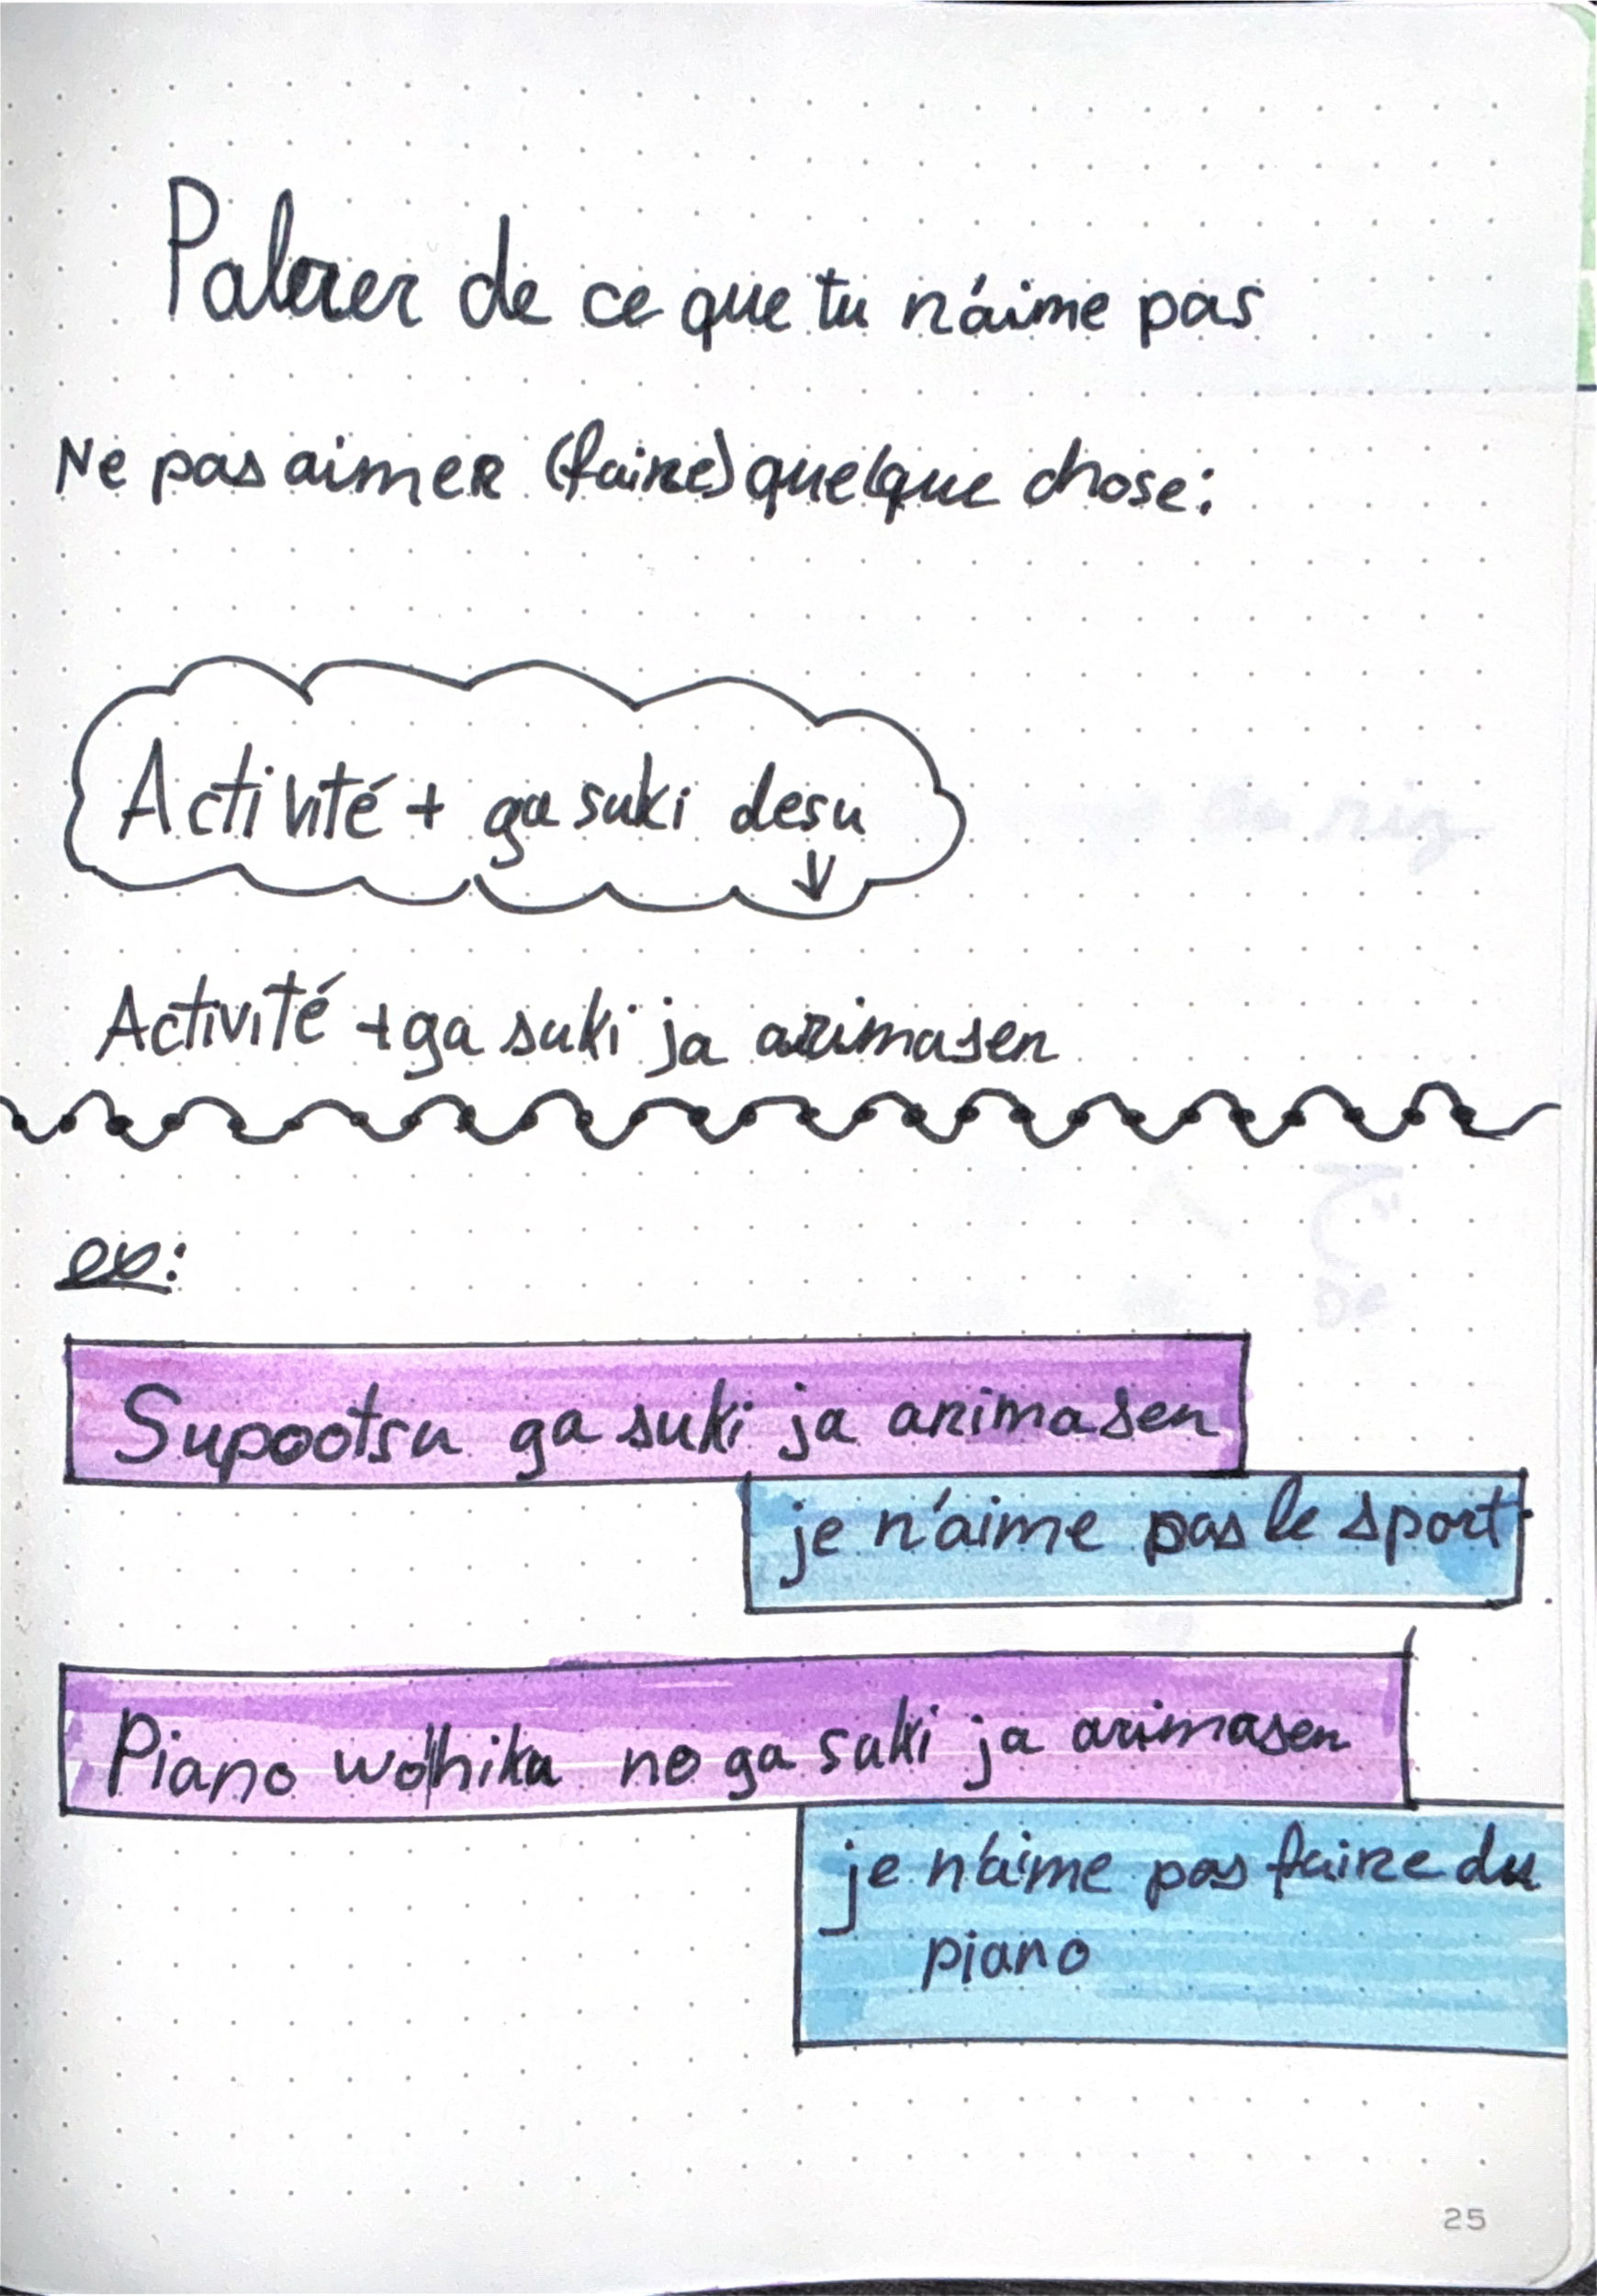 Palrer de ce que tu n'aime pas
Ne pas aimer (faire) quelque chose:
Activité + ga suki desu
↓
Activité + ga suki ja arimasen
ex:
Supootsu ga suki ja arimasen
je n'aime pas le sport
Piano wo hiku no ga suki ja arimasen
je n'aime pas faire du
piano
25